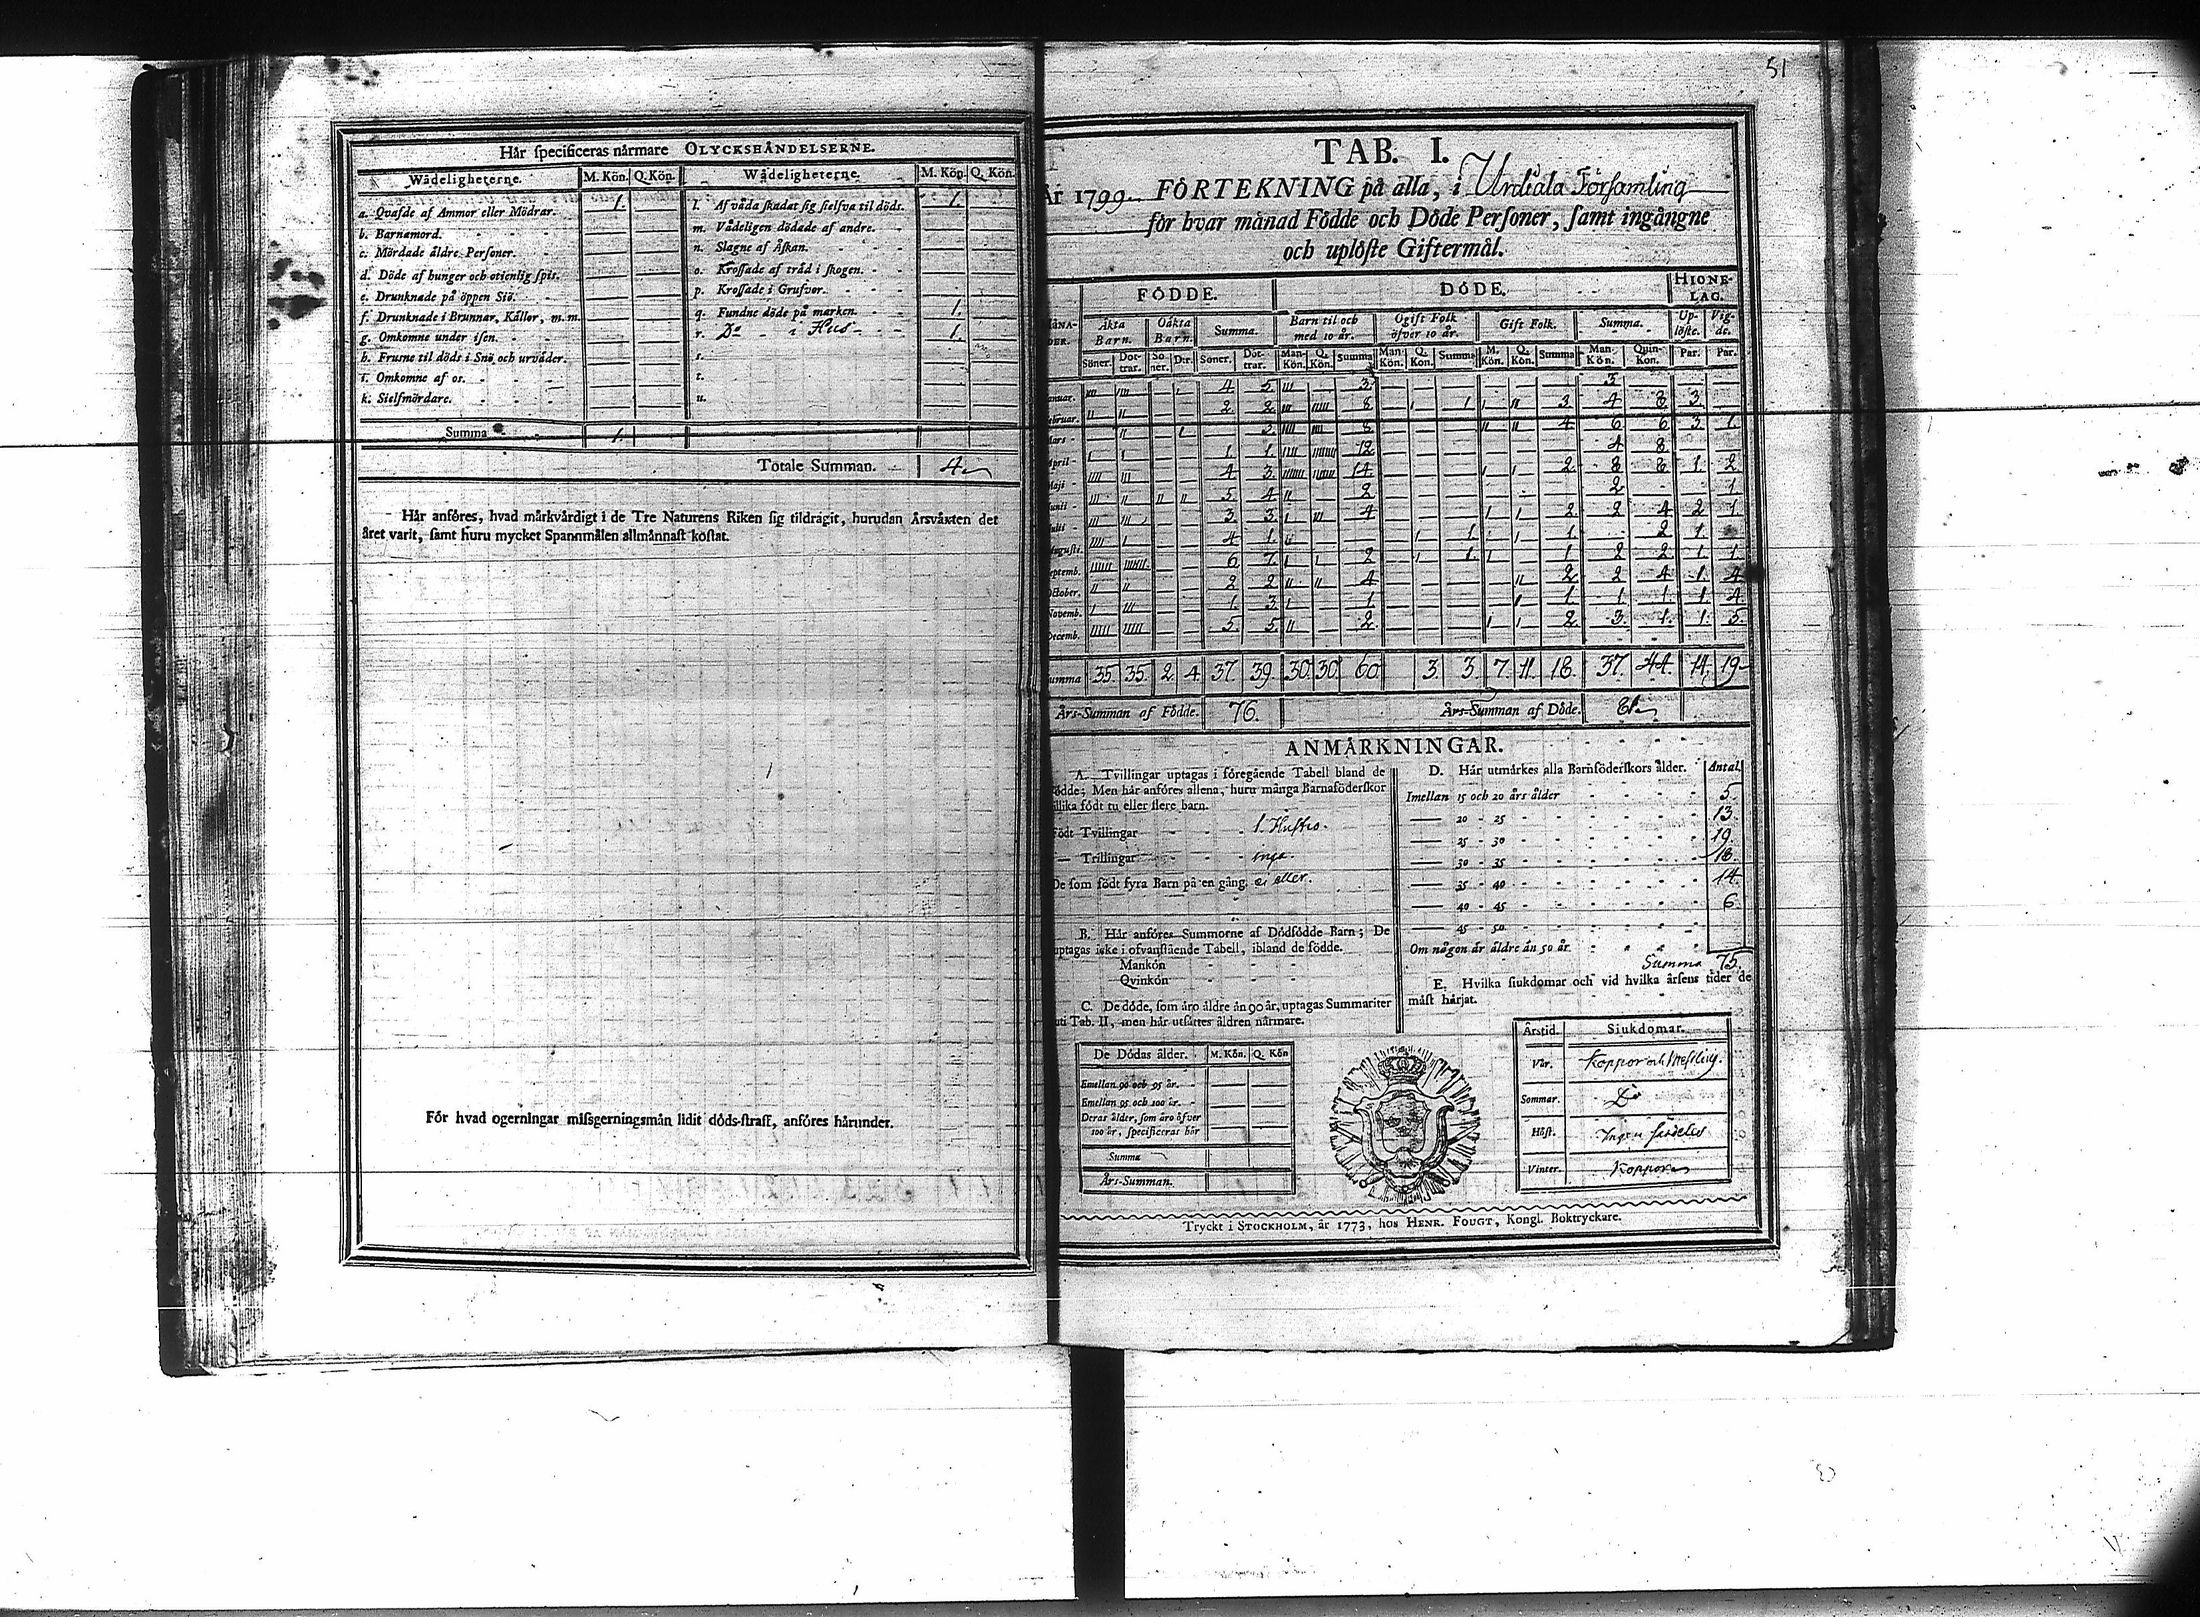 51
Hår specificeras nårmare OLYCKSHÅNDELSERNE.
Wådeligheterne. M. Kön. Q. Kön. Wådeligheterne. M. Kön. Q. Kön.
a. Qvafde af Ammor eller Mödrar. 1. l. Af våda skadat sig sielfva til döds. 1.
b. Barnamord. m. Vådeligen dödade af andre.
c. Mördade åldre Personer. n. Slagne af Åskan.
d. Döde af hunger och otienlig spis. o. Krossade af tråd i skogen.
e. Drunknade på öppen Siö. p. Krossade i Grufvor.
f. Drunknade i Brunnar, Kållor, m. m. q. Fundne döde på marken. 1.
g. Omkomne under isen. r. Do i Hus 1.
h. Frusne til döds i Snö och urvåder. s.
i. Omkomne af os. t.
k. Sielfmördare. u.
Summa 1.
Totale Summan. 4
Hår anföres, hvad mårkvårdigt i de Tre Naturens Riken sig tildragit, hurudan Årsvåxten det
året varit, samt huru mycket Spannmålen allmånnast kostat.
För hvad ogerningar missgerningsmån lidit döds-straff, anföres hårunder.
TAB. I.
År 1799 FÖRTEKNING på alla, i Urdiala Församling
för hvar månad Födde och Döde Personer, samt ingångne
och uplöste Giftermål.
FÖDDE. DÖDE. HIONE-
LAG.
Åkta Barn. Oåkta Barn. Summa. Barn til och med 10 år. Ogift Folk öfver 10 år. Gift Folk. Summa. Up-löste. Vig-de.
Söner. Döt-trar. Sö-ner. Dtr. Söner. Döt-trar. Man-Kön. Q. Kön. Summa Man-Kön. Q. Kön. Summa M. Kön. Q. Kön. Summa Man-Kön. Quin-kon. Par. Par.
anuar. 4 5 3 3
ebruar. 2 2 8 1 3 4 8 3
Mars 2 8 4 6 6 3 1
April 1 1 12 4 8
Maji 4 3 14 2 8 8 1 2
unii 5 4 2 2 1
ulii 3 3 4 2 2 4 2 1
ugusti. 4 1 1 1 2 1
eptemb. 6 7 2 1 1 2 2 1 1
October. 2 2 4 2 2 4 1 4
ovemb. 1 3 1 1 1 1 1 4
ecemb. 5 5 2 2 3 1 1 5
umma 35. 35. 2. 4. 37. 39. 30. 30. 60 3 3. 7. 11. 18. 37. 44. 14. 19
Års-Summan af Födde. 76. Års-Summan af Döde. 81
ANMÅRKNINGAR.
A. Tvillingar uptagas i föregående Tabell bland de
födde; Men hår anföres allena, huru många Barnaföderskor
tillika födt tu eller flere barn.
Födt Tvillingar 1. Hustro.
— Trillingar inga.
De som födt fyra Barn på en gång. ei eller.
B. Hår anföres Summorne af Dödfödde Barn; De
uptagas icke i ofvanstående Tabell, ibland de födde.
Mankön
Qvinkön
C. De döde, som åro åldre ån 90 år, uptagas Summariter
uti Tab. II, men hår utsåttes åldren nårmare.
De Dödas ålder. M. Kön. Q. Kön
Emellan 90 och 95 år.
Emellan 95 och 100 år.
Deras ålder, som åro öfver
100 år, specificeras hår
Summa
Års-Summan.
D. Hår utmårkes alla Barnföderskors ålder. Antal.
Imellan 15 och 20 års ålder 5.
— 20 - 25 13.
— 25 - 30 19.
— 30 - 35 18.
— 35 - 40 14.
— 40 - 45 6.
— 45 - 50
Om någon år åldre ån 50 år.
Summa 75.
E. Hvilka siukdomar och vid hvilka årsens tider de
måst hårjat.
Årstid. Siukdomar.
Vår. Koppor och Messling.
Sommar. Do
Höst. Ingen særdeles
Vinter. Koppor
Tryckt i STOCKHOLM, år 1773, hos HENR. FOUGT, Kongl. Boktryckare.